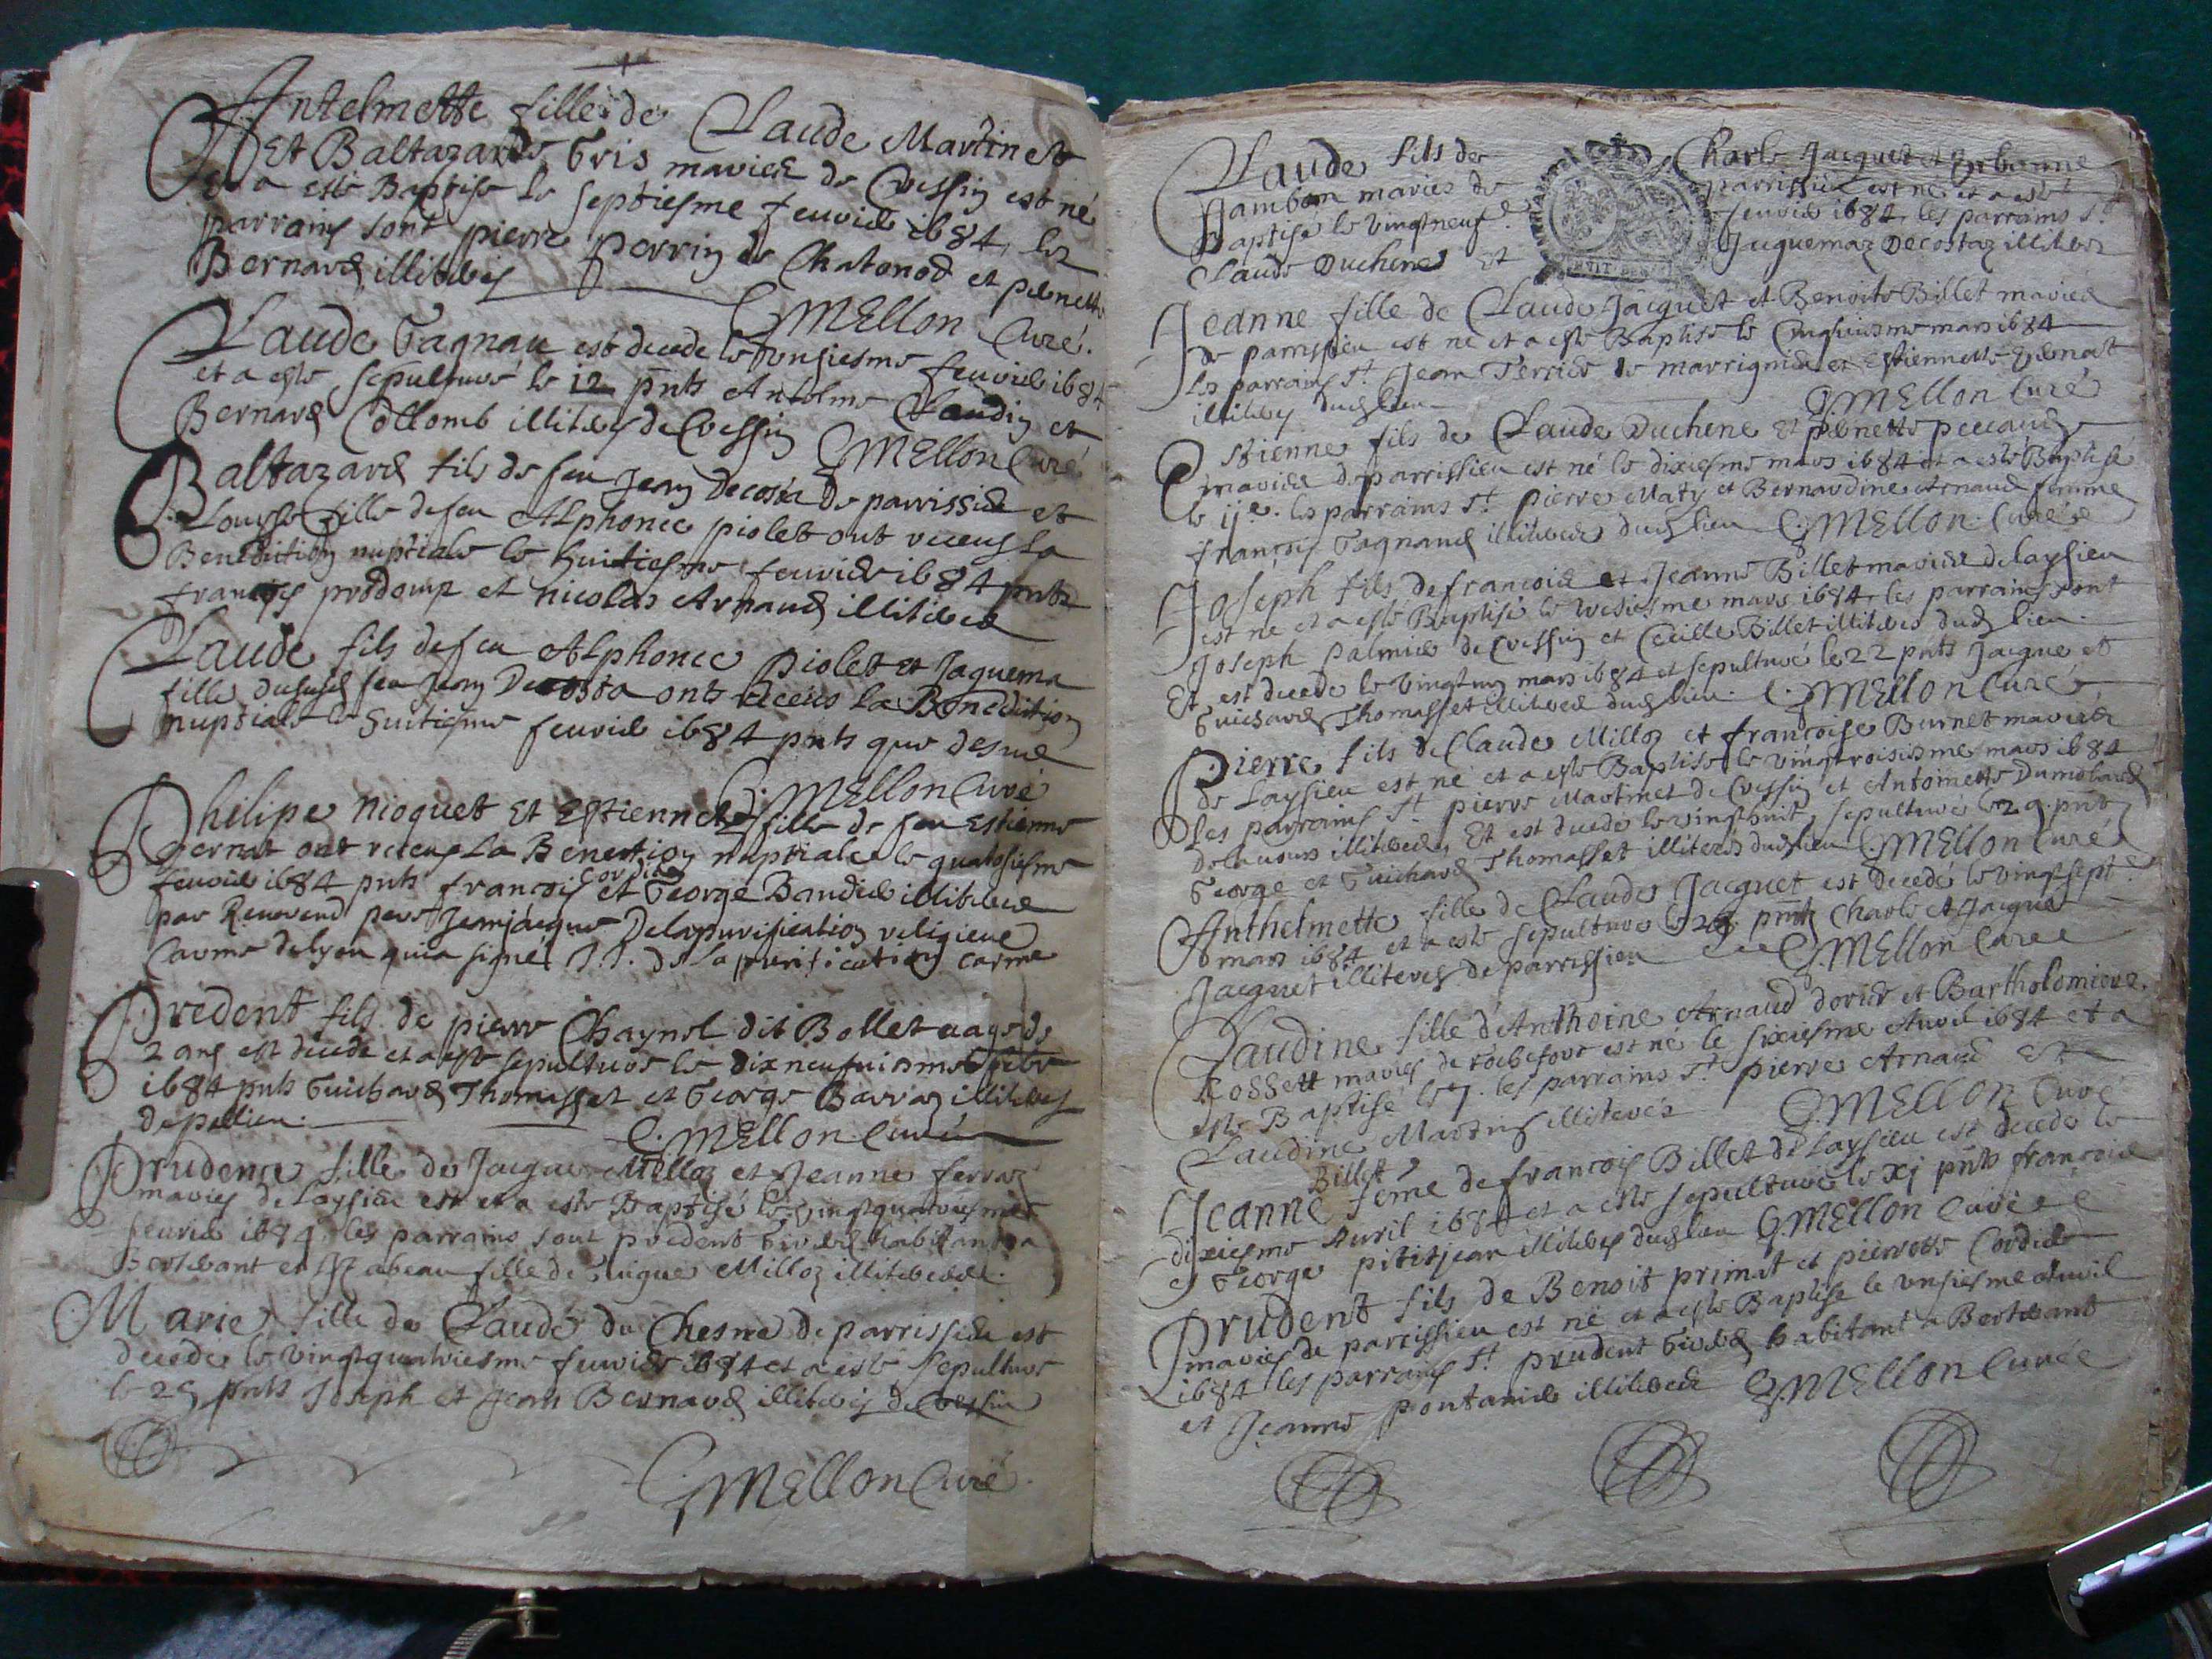 Antelmette fille de Claude Martinet
Et Baltazarde Gris mariez de Cressin est né
et a esté Baptisé le septiesme feuvrier 1684 les
parrains sont pierre perrin de Chatonod et pernette
Bernard illiterés
G MEllon Curé.
Claude Gagnau est decede le unsiesme feuvrier 1684
et a esté sepulturé le 12 pnts Antelme Claudin et
Bernard Collomb illiterés de Cressin G MEllon Curé
Baltazard fils de feu Jean Decosta de parrissieu et
Louyse fille de feu Alphonce piolet ont receus la
Benediction nuptiale le huictiesme feuvrier 1684 pnts
françois prodomp et nicolas Arnaud illiterés
Claude fils de feu Alphonce piolet et Jaquema
fille dususd feu Jean Decosta ont receus la Benediction
nuptiale le huitiesme feuvrier 1684 pnts que desus
G MEllon Curé
Philipe nioquet Et Estiennette fille de feu Estienne
Bernat ont receus La Benection nuptiale le quatorsiesme
feuvrier 1684 pnts françois Cordier et George Baudier illiterés
par Reuerend pere Jeanjacque Delapurification religieux
Carme de lyon qui a signé J.J. de La purification carme
Predent fils de pierre Chaynel dit Bollet aagé de
2 ans est decede et a esté sepulturé le dixneufuiesme febr
1684 pnts Guichard Thomasset et George Barraz illiterés
de pollieu.
G. MEllon Curé
Prudence fille de Jacque Milloz et Jeanne ferraz
mariés de Laysieu est et a esté Baptisé le vingtquatriesme
feuvrier 1684 les parrains sont predent Girard habitant a
Bertheant et Izabeau fille de Guigue Milloz illiterés.
Marie fille de Claude du Chesne de parrissieu est
decede le vingtquatriesme feuvrier 1684 et a esté sepulturé
le 25 pnts Joseph et Jean Bernard illiterés de Cressin
G MEllon Curé.
Claude fils de Charle Jacquet et Urbanne
Jambon mariés de parrissieu est né et a esté
Baptisé le vingtneuf e feuvrier 1684 les parrains st
Claude Duchene Et Jaquemaz Decostaz illiterés
Jeanne fille de Claude Jacquet et Benoite Billet mariés
de parrissieu est né et a esté Baptisé le Cinquiesme mars 1684
les parrains st Jean Terrier de marrignieu et Estiennette Bernat
illiterés dud lieu G. MEllon Curé
Estienne fils de Claude Duchene Et pernette peccaud
mariés de parrissieu est né le dixiesme mars 1684 et a esté Baptisé
le 11e. les parrains st pierre Maty et Bernardine Arnaud femme
françois Gagnaud illiterés dud lieu G. MEllon Curé
Joseph fils de francois et Jeanne Billet mariés de laysieu
est né et a esté Baptisé le tresiesme mars 1684 les parrains sont
Joseph palmier de Cressin et Cecille Billet illiterés dud lieu.
Et est decede le vingtun mars 1684 et sepulturé le 22 pnts Jacque et
Guichard Thomasset illiterés dud lieu. G. MEllon Curé
Pierre fils de Claude Milloz et françoise Burnet mariés
de Laysieu est né et a esté Baptisé le vingtroisiesme mars 1684
les parrains st pierre Martinet de Cressin et Antoinette Dumollard
illiterés Et est decede le vingthuit, sepulturé le 29. pnts
George et Guichard Thomasset illiterés dud lieu G. MEllon Curé
Anthelmette fille de Claude Jacquet est decedé le vingtsept e
mars 1684 et a esté sepulturé le 28 pnts Charle et Jacque
Jacquet illiterés de parrissieu G MEllon Curé
Claudine fille d'Anthoine Arnaud dorier et Bartholomieue
Rossett mariés de rochefort est né le sixiesme Avril 1684 et a
esté Baptisé le 7. les parrains st pierre Arnaud Et
Claudine Martin illiterés G. MEllon Curé
Billet
Jeanne feme de françois Billet de Laysieu est decede le
dixiesme Avril 1684 et a esté sepulturé le xj pnts françois
et George pititjean illiterés dud lieu G. MEllon Curé
Prudent fils de Benoit primat et pierrette Cordier
mariés de parrissieu est né et a esté Baptisé le unsiesme avril
1684 les parrains st prudent Girard habitant a Bertheant
et Jeanne pontanier illiterés G. MEllon Curé